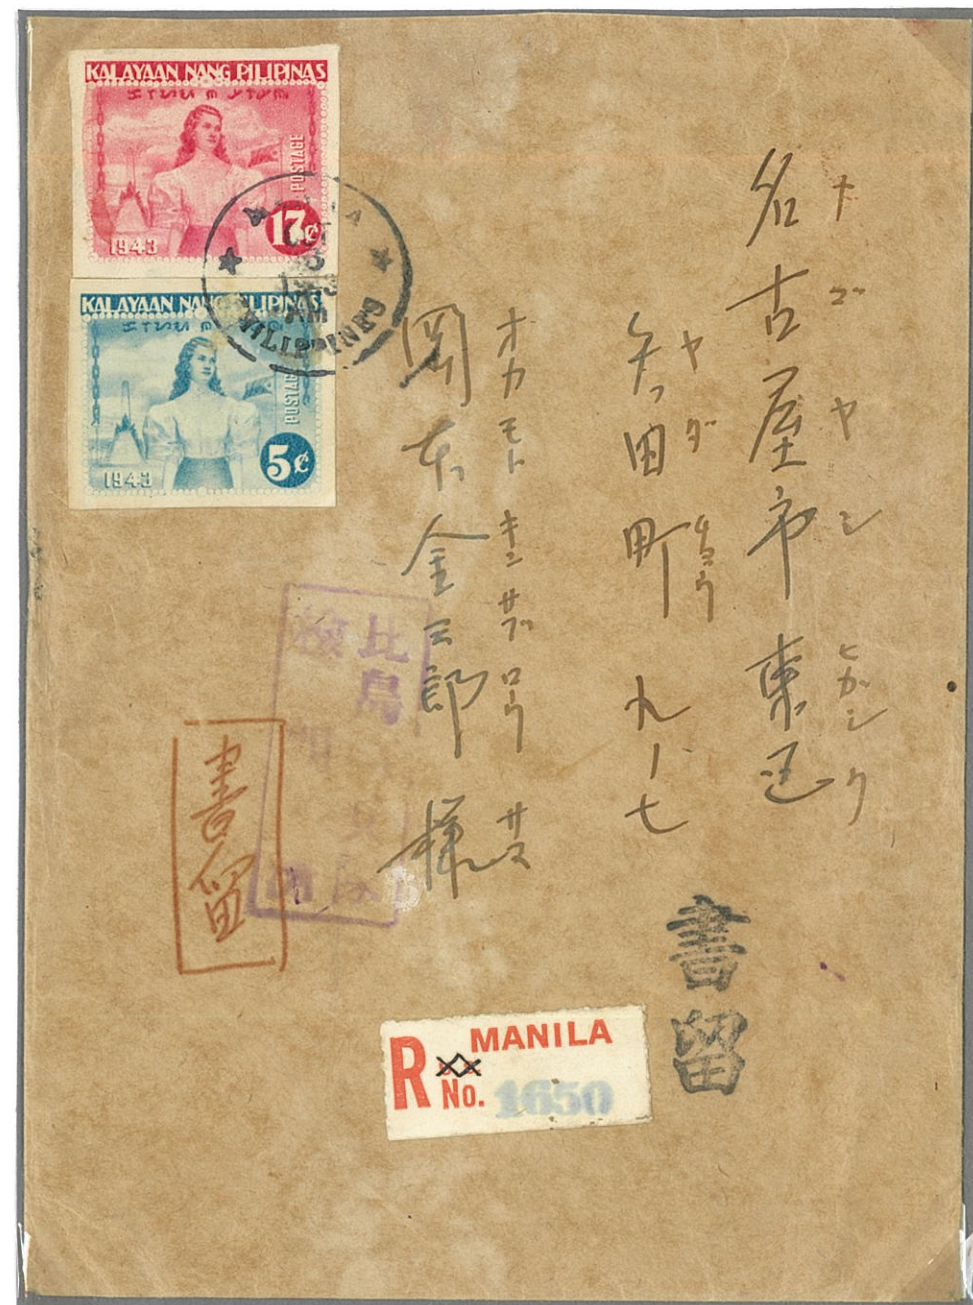 KALAYAAN NANG PILIPINAS
POSTAGE
1943
17¢
KALAYAAN NANG PILIPINAS
POSTAGE
1943
5¢
PHILIPPINES
ナゴヤシ ヒガシク
名古屋市東区
ヤダ チョウ
矢田町 九ノ七
オカモト キンザブロウ サマ
岡本金三郎様
比島
検
書留
書留
R MANILA
No. 1650